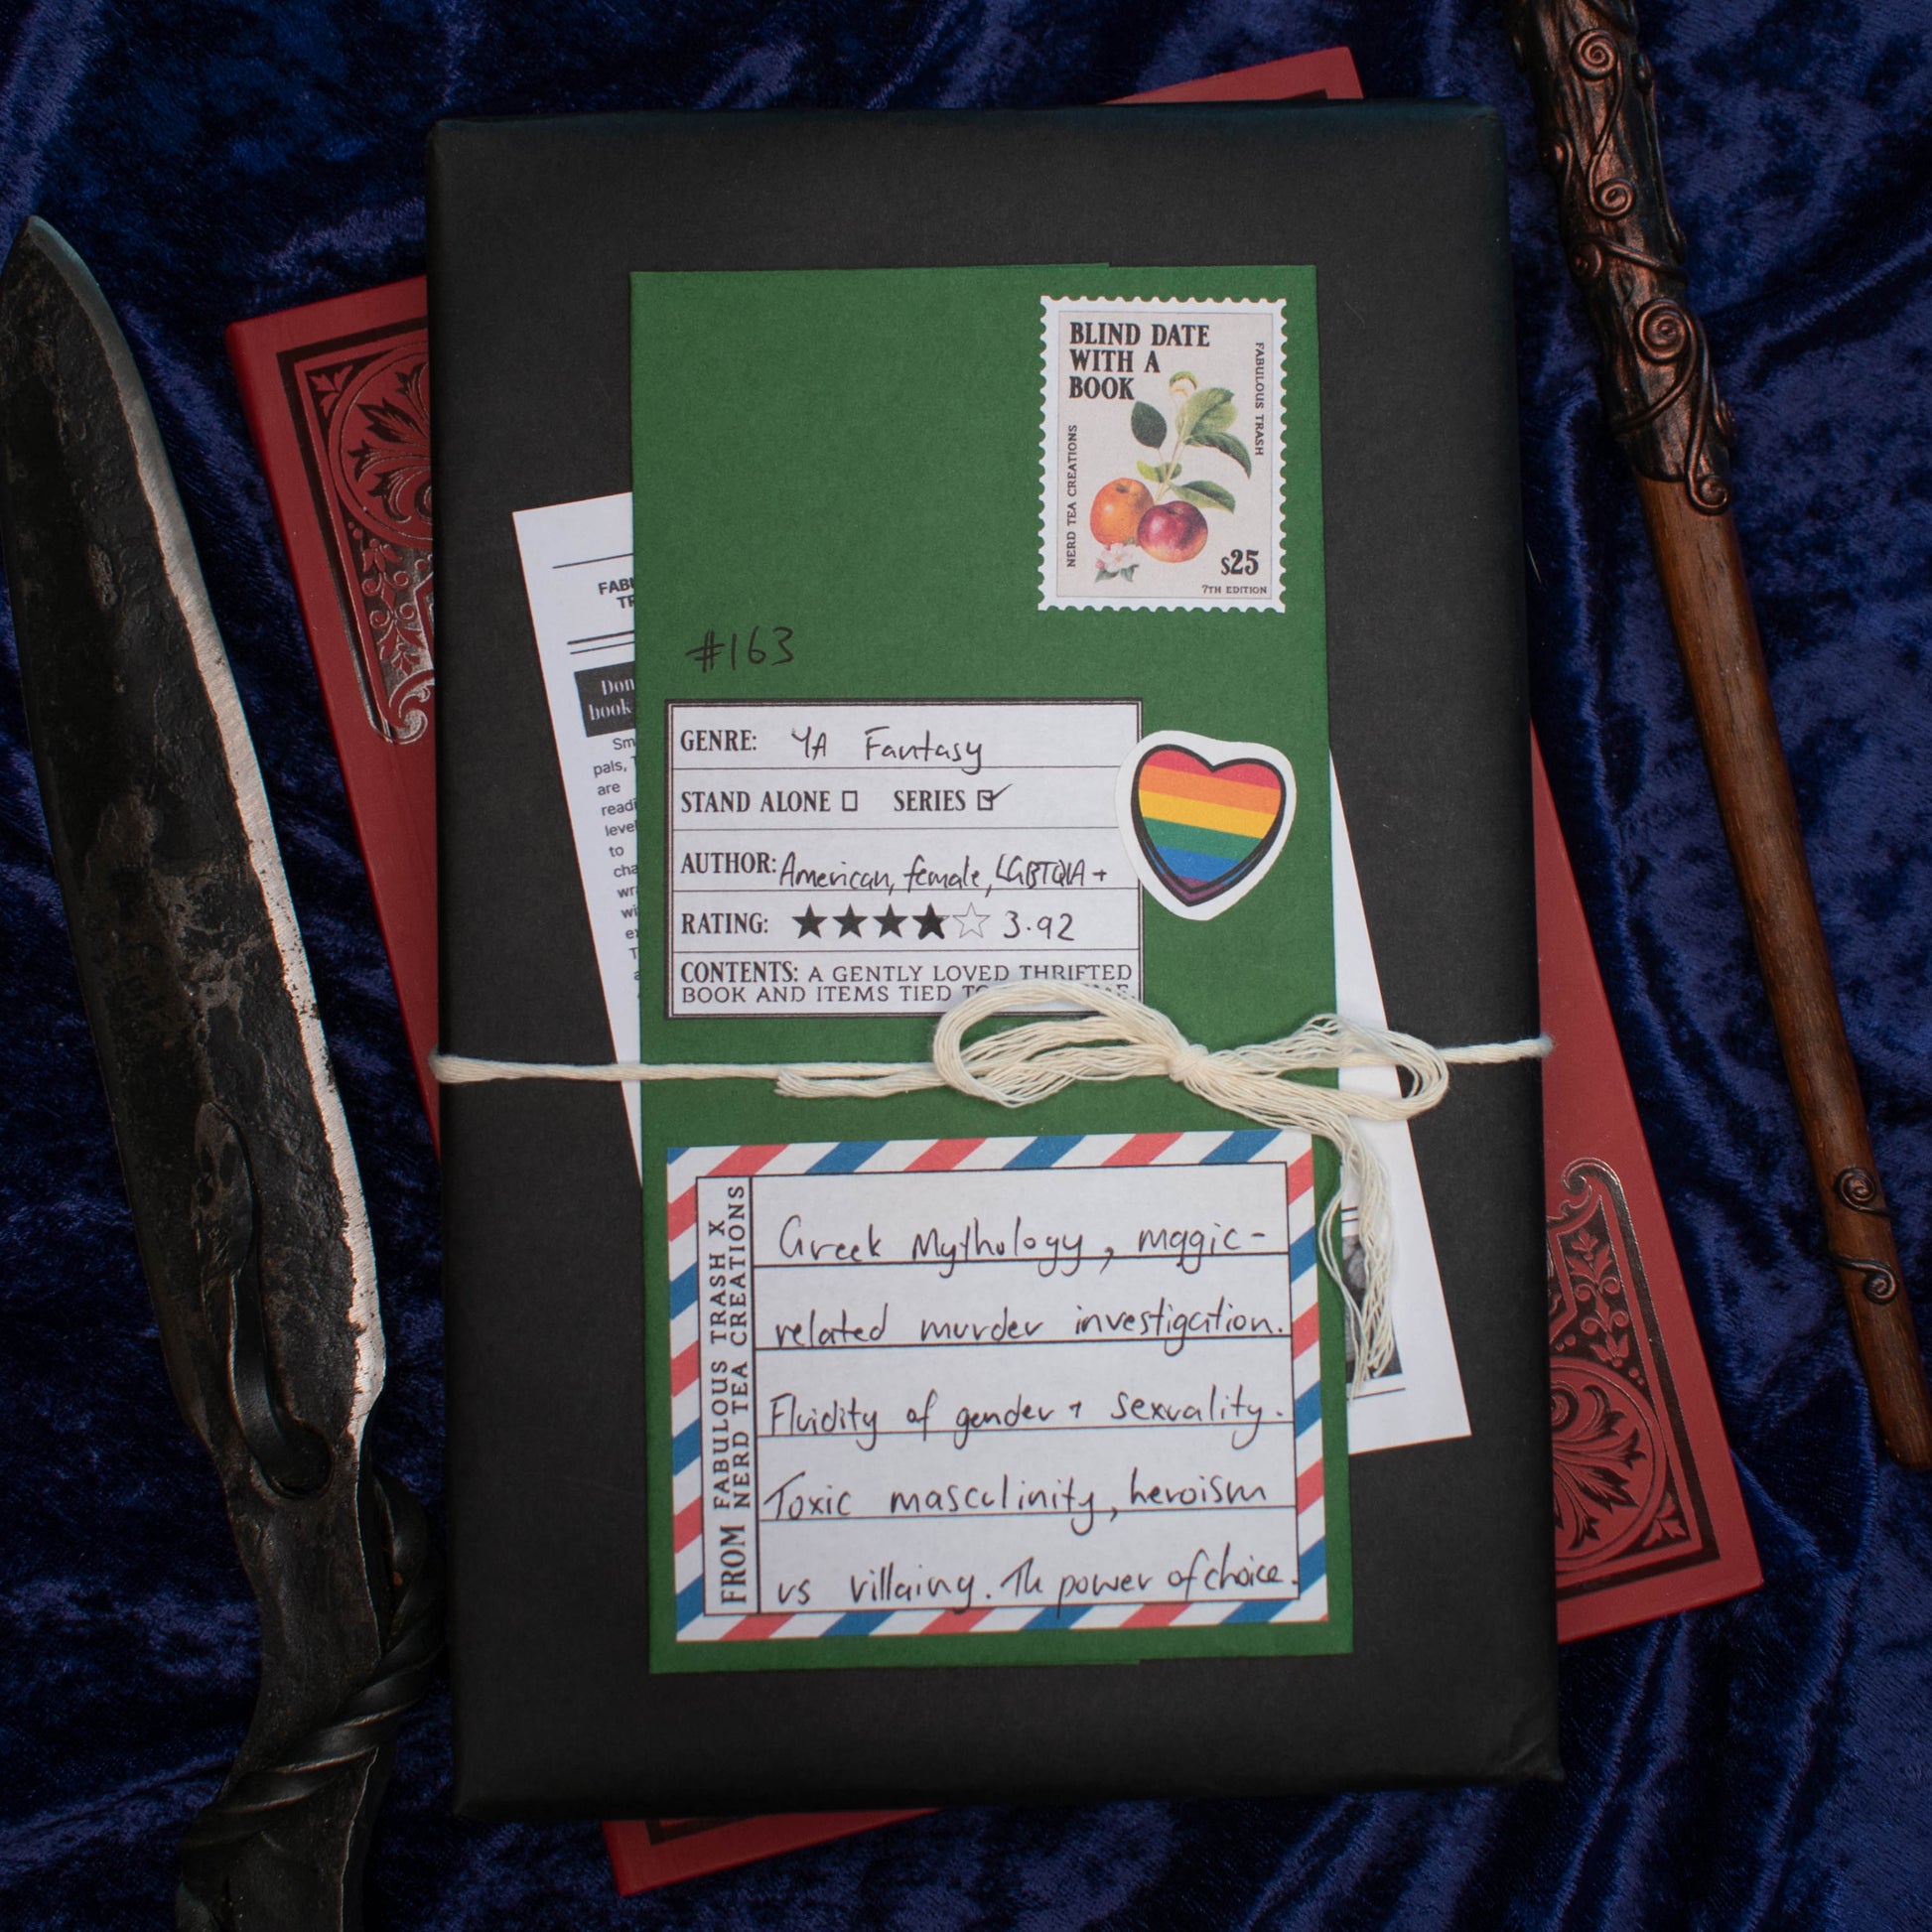 BLIND DATE
WITH A
BOOK
FABULOUS TRASH
NERD TEA CREATIONS
$25
7TH EDITION
#163
GENRE: YA Fantasy
STAND ALONE SERIES
AUTHOR: American, female, LGBTQIA+
RATING: 3.92
CONTENTS: A GENTLY LOVED THRIFTED
BOOK AND ITEMS TIED
FROM FABULOUS TRASH X
NERD TEA CREATIONS
Greek Mythology, magic-
related murder investigation.
Fluidity of gender + sexuality.
Toxic masculinity, heroism
vs villainy. The power of choice.
book
pals,
are
to